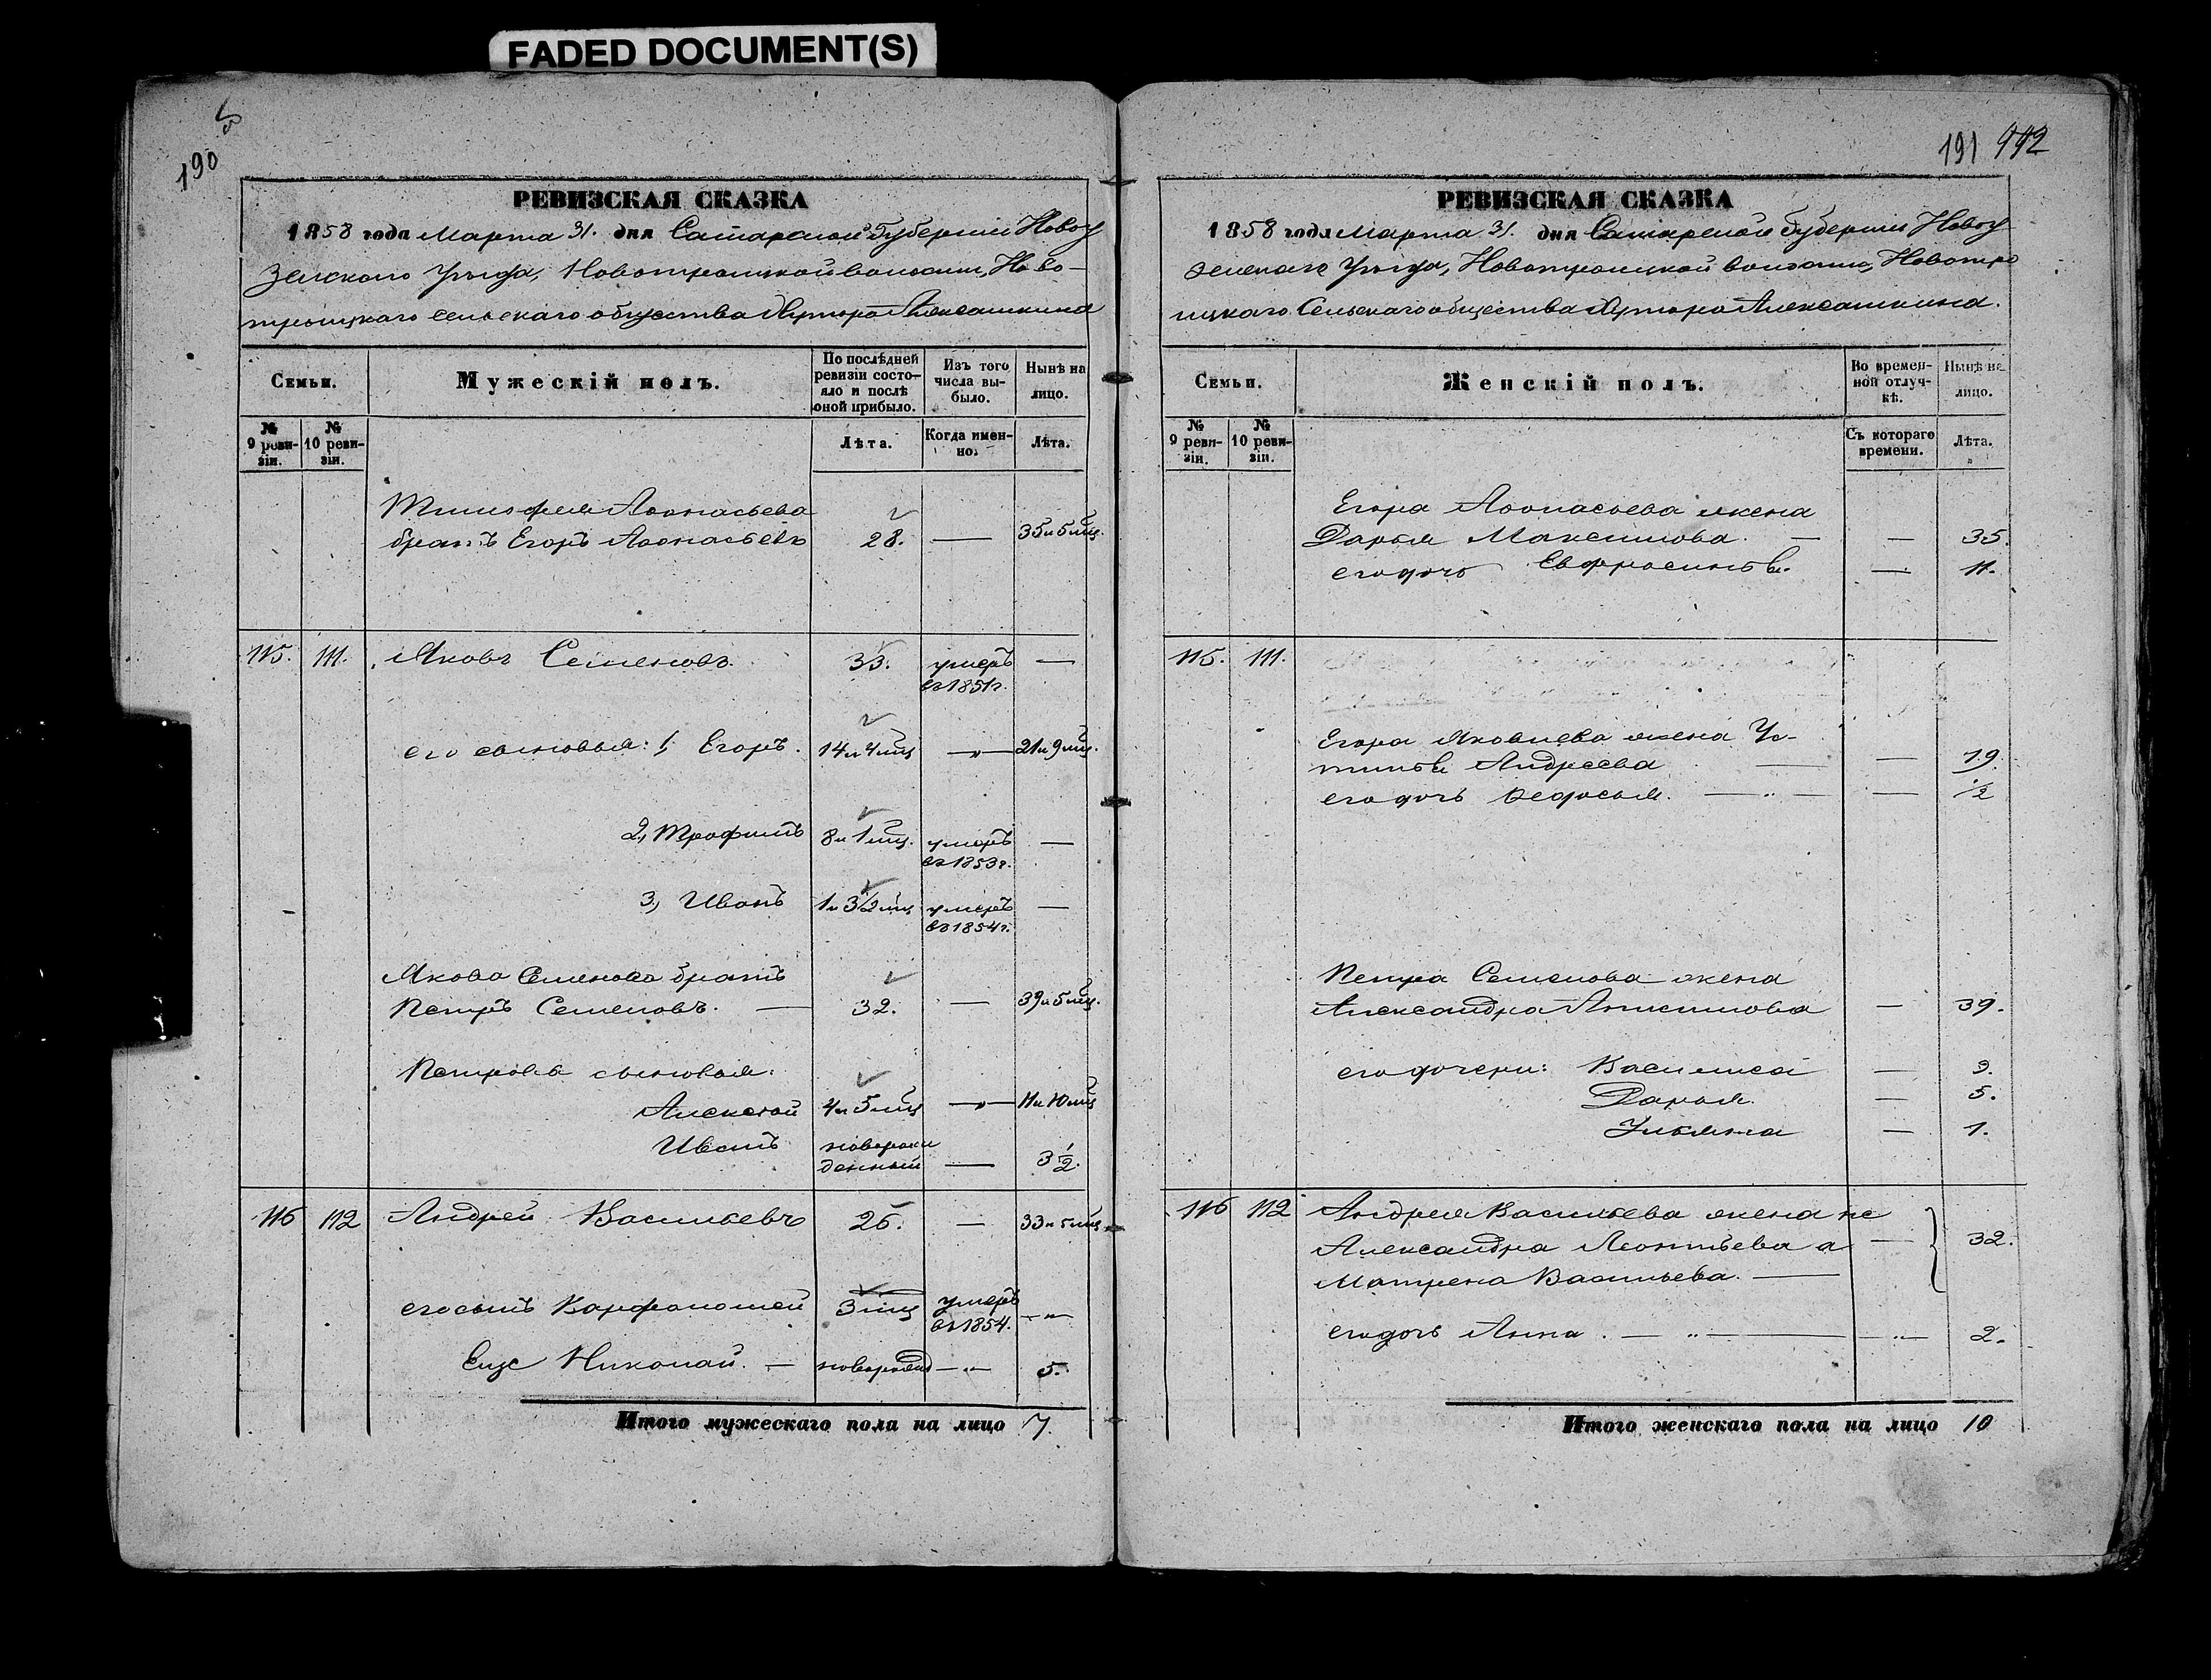 FADED DOCUMENT(S)
190
РЕВИЗСКАЯ СКАЗКА
1858 года Марта 31. дня Самарской Губерніи Новоу
зенскаго Уѣзда, Новотроицкой волости, Ново-
троицкаго сельскаго общества Хутора Алексашкина
Семьи.
Мужескій полъ.
По послѣдней ревизіи состо-
яло и послѣ оной прибыло.
Изъ того числа вы-
было.
Нынѣ на лицо.
№ 9 реви-
зіи.
№ 10 реви-
зіи.
Лѣта.
Когда имен-
но.
Лѣта.
Тимофея Афонасьева
братъ Егоръ Афонасьевъ 28. — 35 и 5 мѣц.
115. 111. Яковъ Семеновъ. 33. умеръ —
въ 1851 г.
его сыновья: 1, Егоръ. 14 и 4 мѣц —"— 21 и 9 мѣц.
2, Трофимъ 8 и 1 мѣц. умеръ —
въ 1853 г.
3, Иванъ 1 и 3 1/2 мѣц умеръ —
въ 1854 г.
Якова Семенова братъ
Петръ Семеновъ. — 32. — 39 и 5 мѣц.
Петровы сыновья:
Алексѣй 4 и 5 мѣц —"— 11 и 10 мѣц
Иванъ новорож
денный — 3 1/2.
116 112 Андрей Васильевъ 26. — 33 и 5 мѣц
его сынъ Варфоломей 3 мѣц умеръ —"—
въ 1854.
Еще Николай. — новорожд —"— 5.
Итого мужескаго пола на лицо 7.
191 112
РЕВИЗСКАЯ СКАЗКА
1858 года Марта 31. дня Самарской Губерніи Новоу
зенскаго Уѣзда, Новотроицкой волости, Новотро
ицкаго Сельскаго общества Хутора Алексашкина.
Семьи.
Женскій полъ.
Во времен-
ной отлуч-
кѣ.
Нынѣ на лицо.
№ 9 реви-
зіи.
№ 10 реви-
зіи.
Съ котораго времени.
Лѣта.
Егора Афонасьева жена
Дарья Максимова. — — 35.
его дочь Евфросинья. — 11.
115. 111.
Егора Яковлева жена Ус-
тинья Андреева — — 19.
его дочь Федосья. —"— — 1/2
Петра Семенова жена
Александра Анисимова — 39.
его дочери: Василиса — 9.
Дарья. — 5.
Ульяна — 1.
116 112 Андрея Васильева жена не
Александра Леонтьева а — 32.
Матрена Васильева. —
его дочь Анна. —"— —"— 2.
Итого женскаго пола на лицо 10